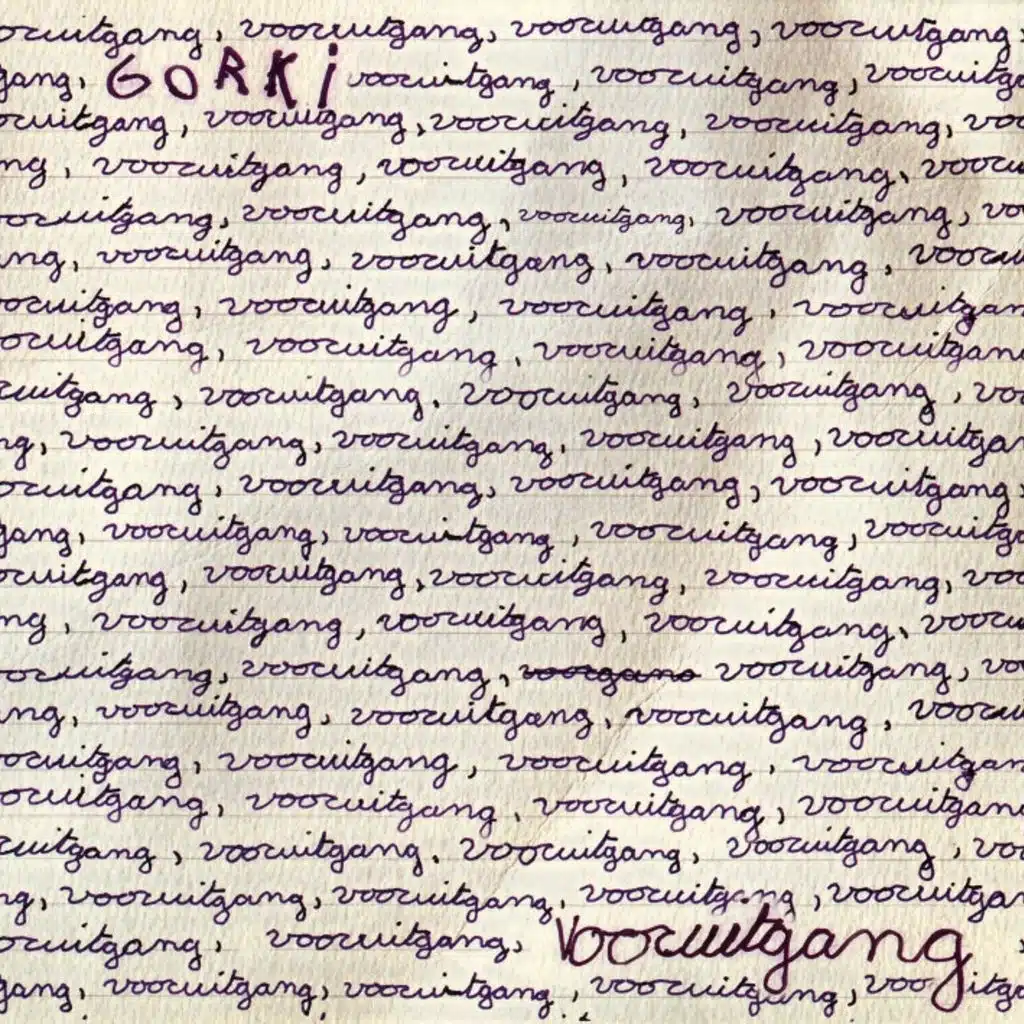 oruitgang, vooruitgang, vooruitgang, vooruitgang,
gang, GORKI vooruitgang, vooruitgang, vooruitga
oruitgang, vooruitgang, vooruitgang, vooruitgang, voo
ng, vooruitgang, vooruitgang, vooruitgang, vooru
ooruitgang, vooruitgang, vooruitgang, vooruitgang, vo
ang, vooruitgang, vooruitgang, vooruitgang, vooru
ooruitgang, vooruitgang, vooruitgang, vooruitgan
oruitgang, vooruitgang, vooruitgang, vooruitgang
ruitgang, vooruitgang, vooruitgang, vooruitgang, voo
ng, vooruitgang, vooruitgang, vooruitgang, vooruitgan
oruitgang, vooruitgang, vooruitgang, vooruitgang,
gang, vooruitgang, vooruitgang, vooruitgang, vooruitga
oruitgang, vooruitgang, vooruitgang, vooruitgang, voo
ng, vooruitgang, vooruitgang, vooruitgang, vooru
ooruitgang, vooruitgang, voorgang vooruitgang, vo
ang, vooruitgang, vooruitgang, vooruitgang, vooru
ooruitgang, vooruitgang, vooruitgang, vooruitgan
oruitgang, vooruitgang, vooruitgang, vooruitgang
ruitgang, vooruitgang, vooruitgang, vooruitgang, voo
ng, vooruitgang, vooruitgang, vooruitgang, vooruitgan
oruitgang, vooruitgang, Vooruitgang
gang, vooruitgang, vooruitgang, vooruitgang, voo itga